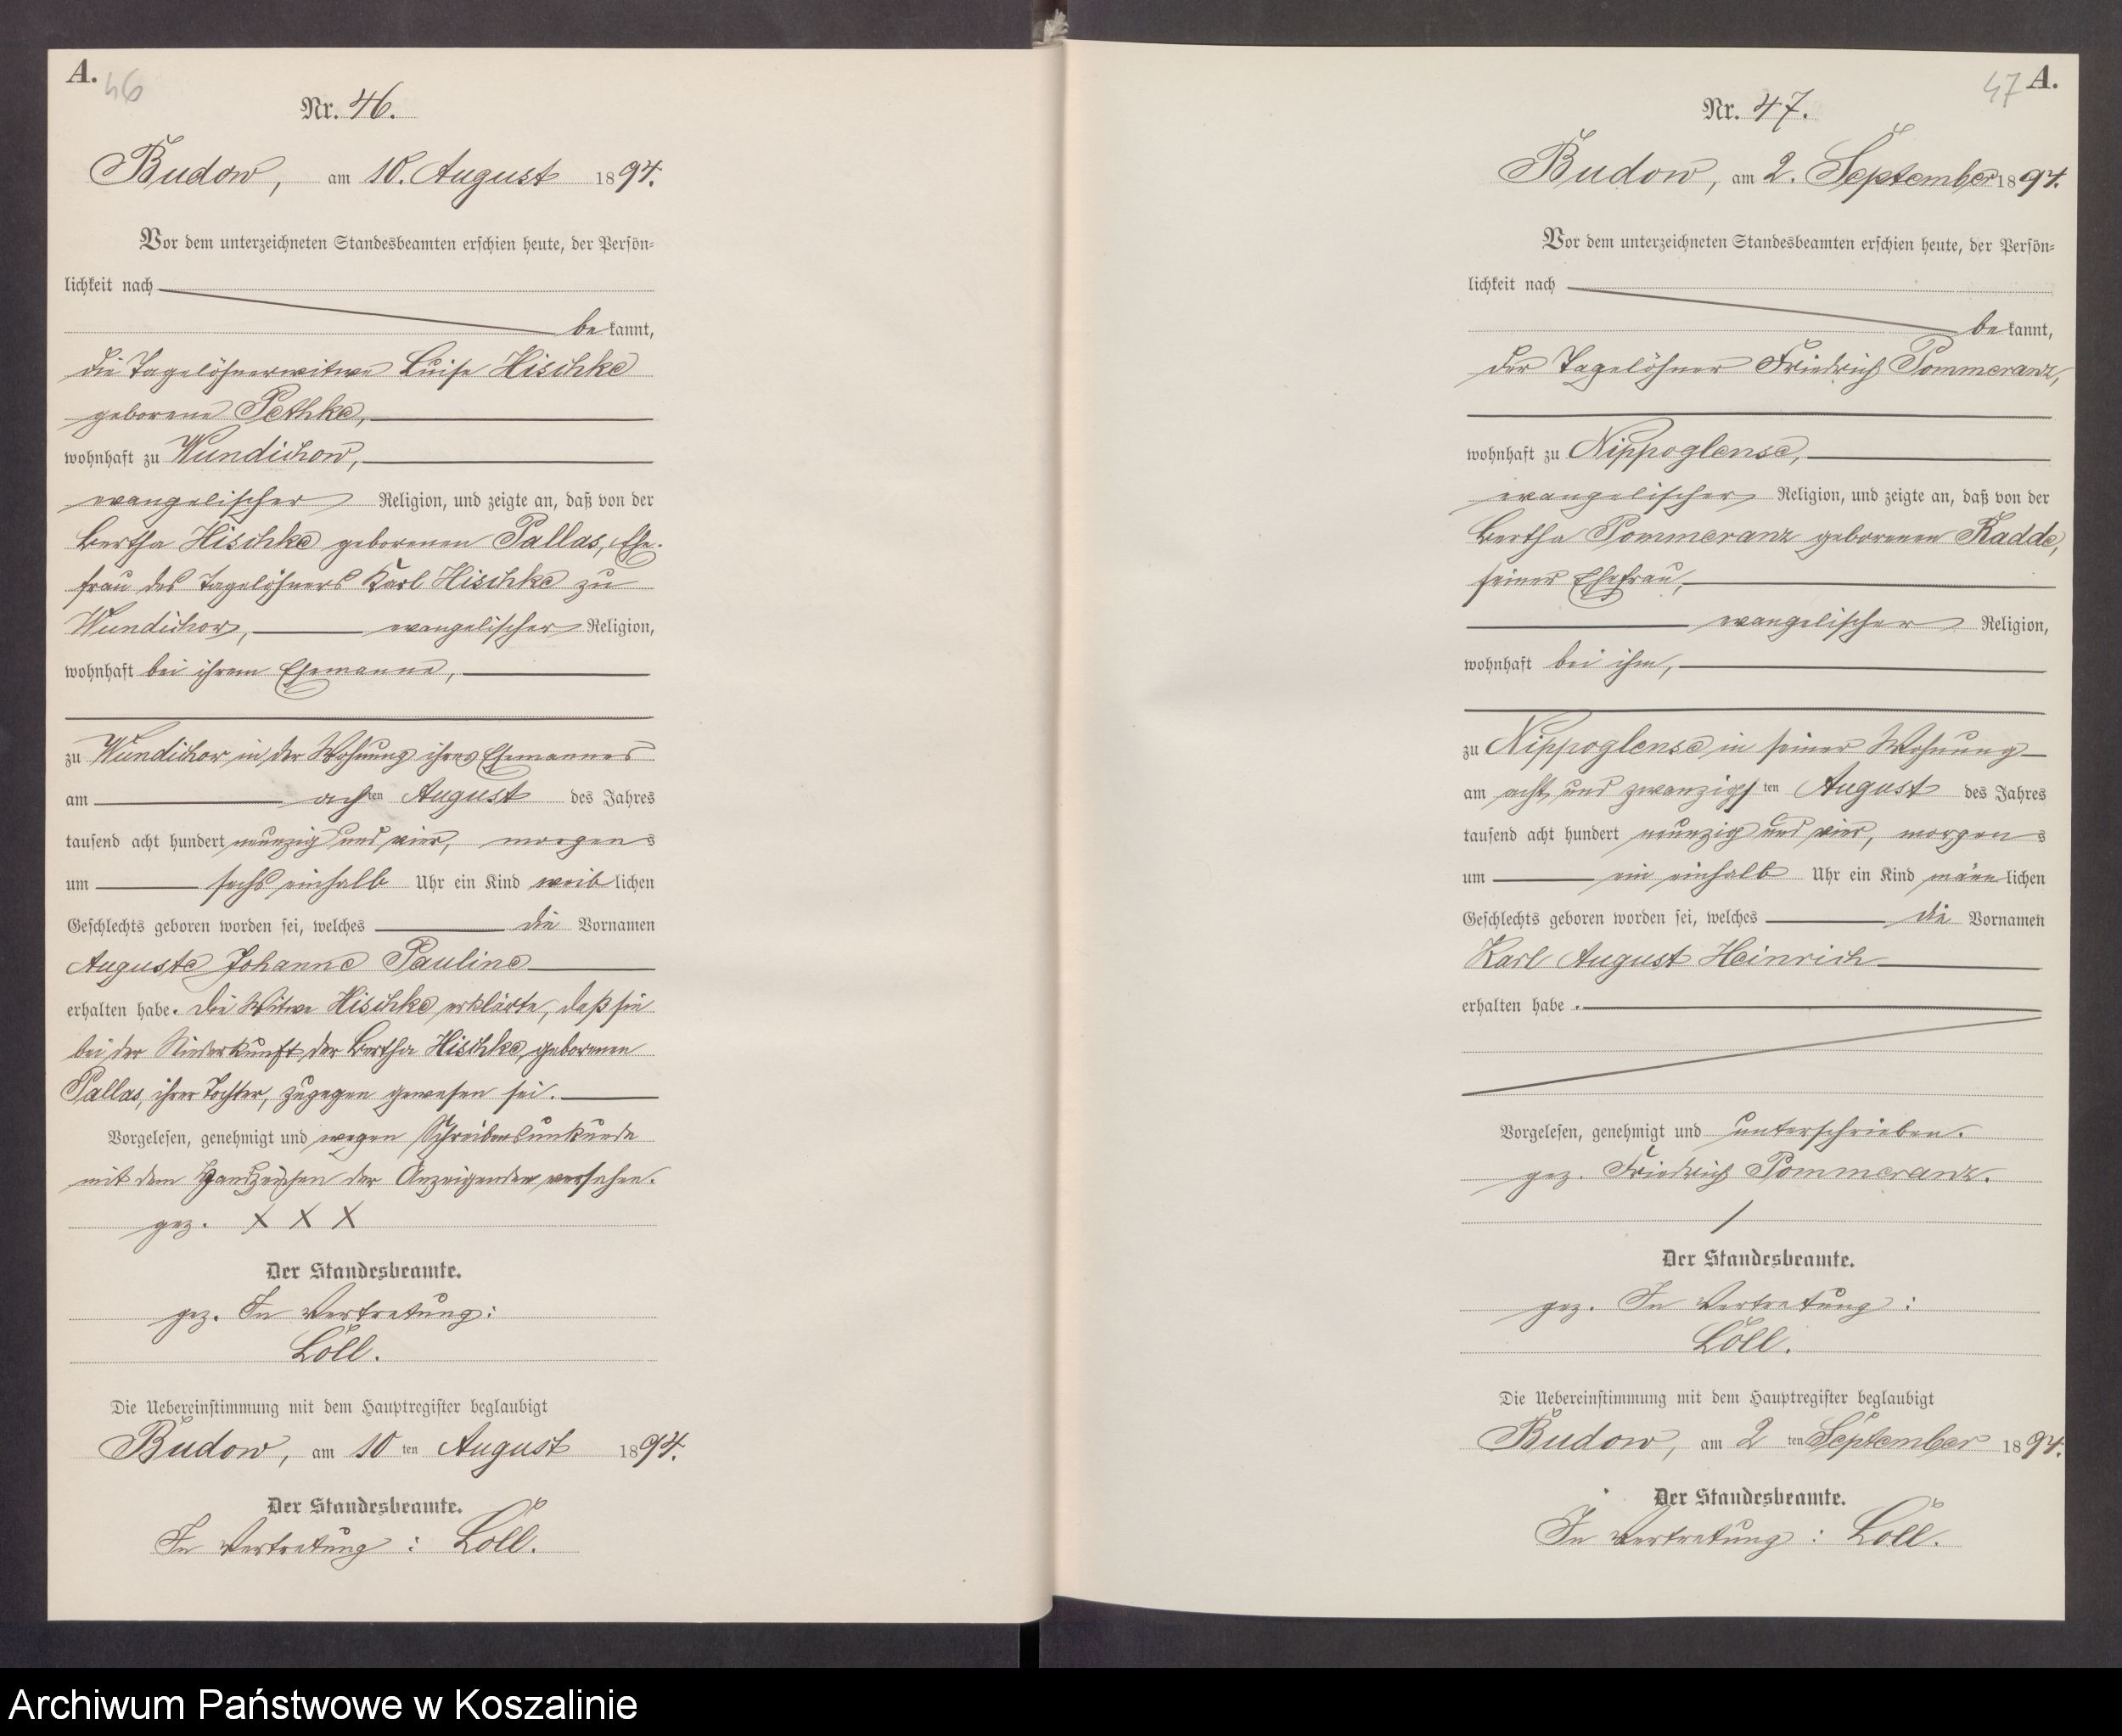 A.
46
Nr. 46.
Budow, am 10. August 1894.
Vor dem unterzeichneten Standesbeamten erschien heute, der Persön-
lichkeit nach
bekannt,
die Tagelöhnerwitwe Luise Hischke
geborene Pethke,
wohnhaft zu Wundichow,
evangelischer Religion, und zeigte an, daß von der
Bertha Hischke geborenen Pallas, Ehe-
frau des Tagelöhners Karl Hischke zu
Wundichow, evangelischer Religion,
wohnhaft bei ihrem Ehemanne,
zu Wundichow in der Wohnung ihres Ehemannes
am achten August des Jahres
tausend acht hundert neunzig und vier, morgens
um sechs einhalb Uhr ein Kind weiblichen
Geschlechts geboren worden sei, welches die Vornamen
Auguste Johanne Pauline
erhalten habe. Die Witwe Hischke erklärte, daß sie
bei der Niederkunft der Bertha Hischke, geborenen
Pallas, ihrer Tochter, zugegen gewesen sei.
Vorgelesen, genehmigt und wegen Schreibensunkunde
mit dem Handzeichen der Anzeigenden versehen.
gez. X X X
Der Standesbeamte.
gez. In Vertretung:
Löll.
Die Uebereinstimmung mit dem Hauptregister beglaubigt
Budow, am 10ten August 1894.
Der Standesbeamte.
In Vertretung: Löll.
47 A.
Nr. 47.
Budow, am 2. September 1894.
Vor dem unterzeichneten Standesbeamten erschien heute, der Persön-
lichkeit nach
bekannt,
der Tagelöhner Friedrich Pommeranz,
wohnhaft zu Nippoglense,
evangelischer Religion, und zeigte an, daß von der
Bertha Pommeranz geborenen Radde,
seiner Ehefrau,
evangelischer Religion,
wohnhaft bei ihm,
zu Nippoglense in seiner Wohnung
am acht und zwanzigsten August des Jahres
tausend acht hundert neunzig und vier, morgens
um ein einhalb Uhr ein Kind männlichen
Geschlechts geboren worden sei, welches die Vornamen
Karl August Heinrich
erhalten habe.
Vorgelesen, genehmigt und unterschrieben.
gez. Friedrich Pommeranz.
Der Standesbeamte.
gez. In Vertretung:
Löll.
Die Uebereinstimmung mit dem Hauptregister beglaubigt
Budow, am 2ten September 1894.
Der Standesbeamte.
In Vertretung: Löll.
Archiwum Państwowe w Koszalinie